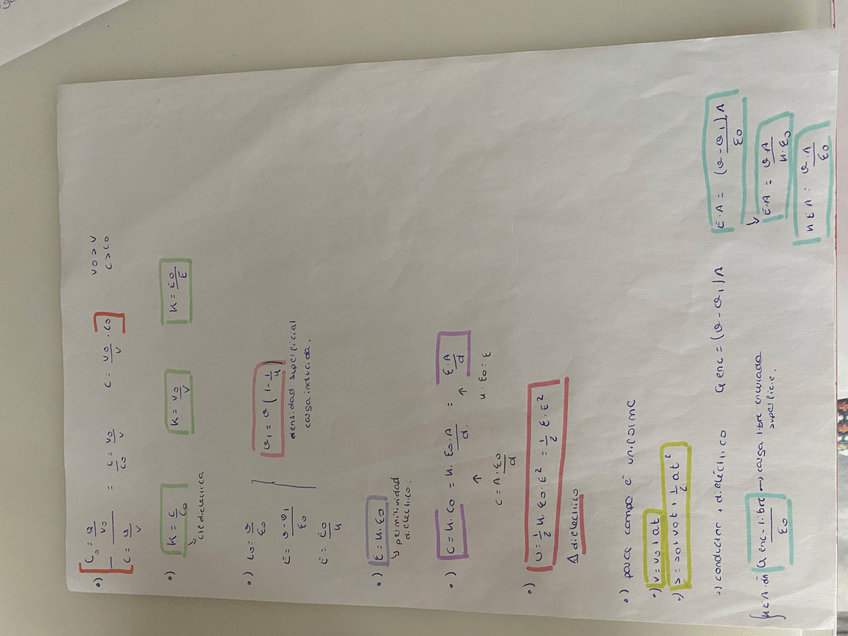 •) C₀ = Q/V₀ = C/C₀ = V₀/V C = V₀/V · C₀ V₀ > V
C = Q/V C > C₀
•) K = C/C₀ K = V₀/V K = E₀/E
↳ cte dieléctrica
•) E₀ = σ/ε₀
E = σ - σ₁/ε₀ σ₁ = σ (1 - 1/K)
E = E₀/K densidad superficial
carga inducida.
•) ε = K · ε₀
↳ permitividad
dieléctrico.
•) C = K · C₀ = K · ε₀ · A/d = ε A/d
↑ ↑
C = A · ε₀/d K · ε₀ = ε
•) U = 1/2 K ε₀ · E² = 1/2 ε · E²
Δ dieléctrico
•) para campo E uniforme
•) V = V₀ + at
•) s = s₀ + v₀t + 1/2 at²
•) conductor + dieléctrico Q enc = (σ - σ₁) A E · A = (σ - σ₁) A/ε₀
↓
E · A = σ A/K · ε₀
∫ K E A · dA Q enc-libre/ε₀ → carga libre encerrada K E A = σ · A/ε₀
superficie.